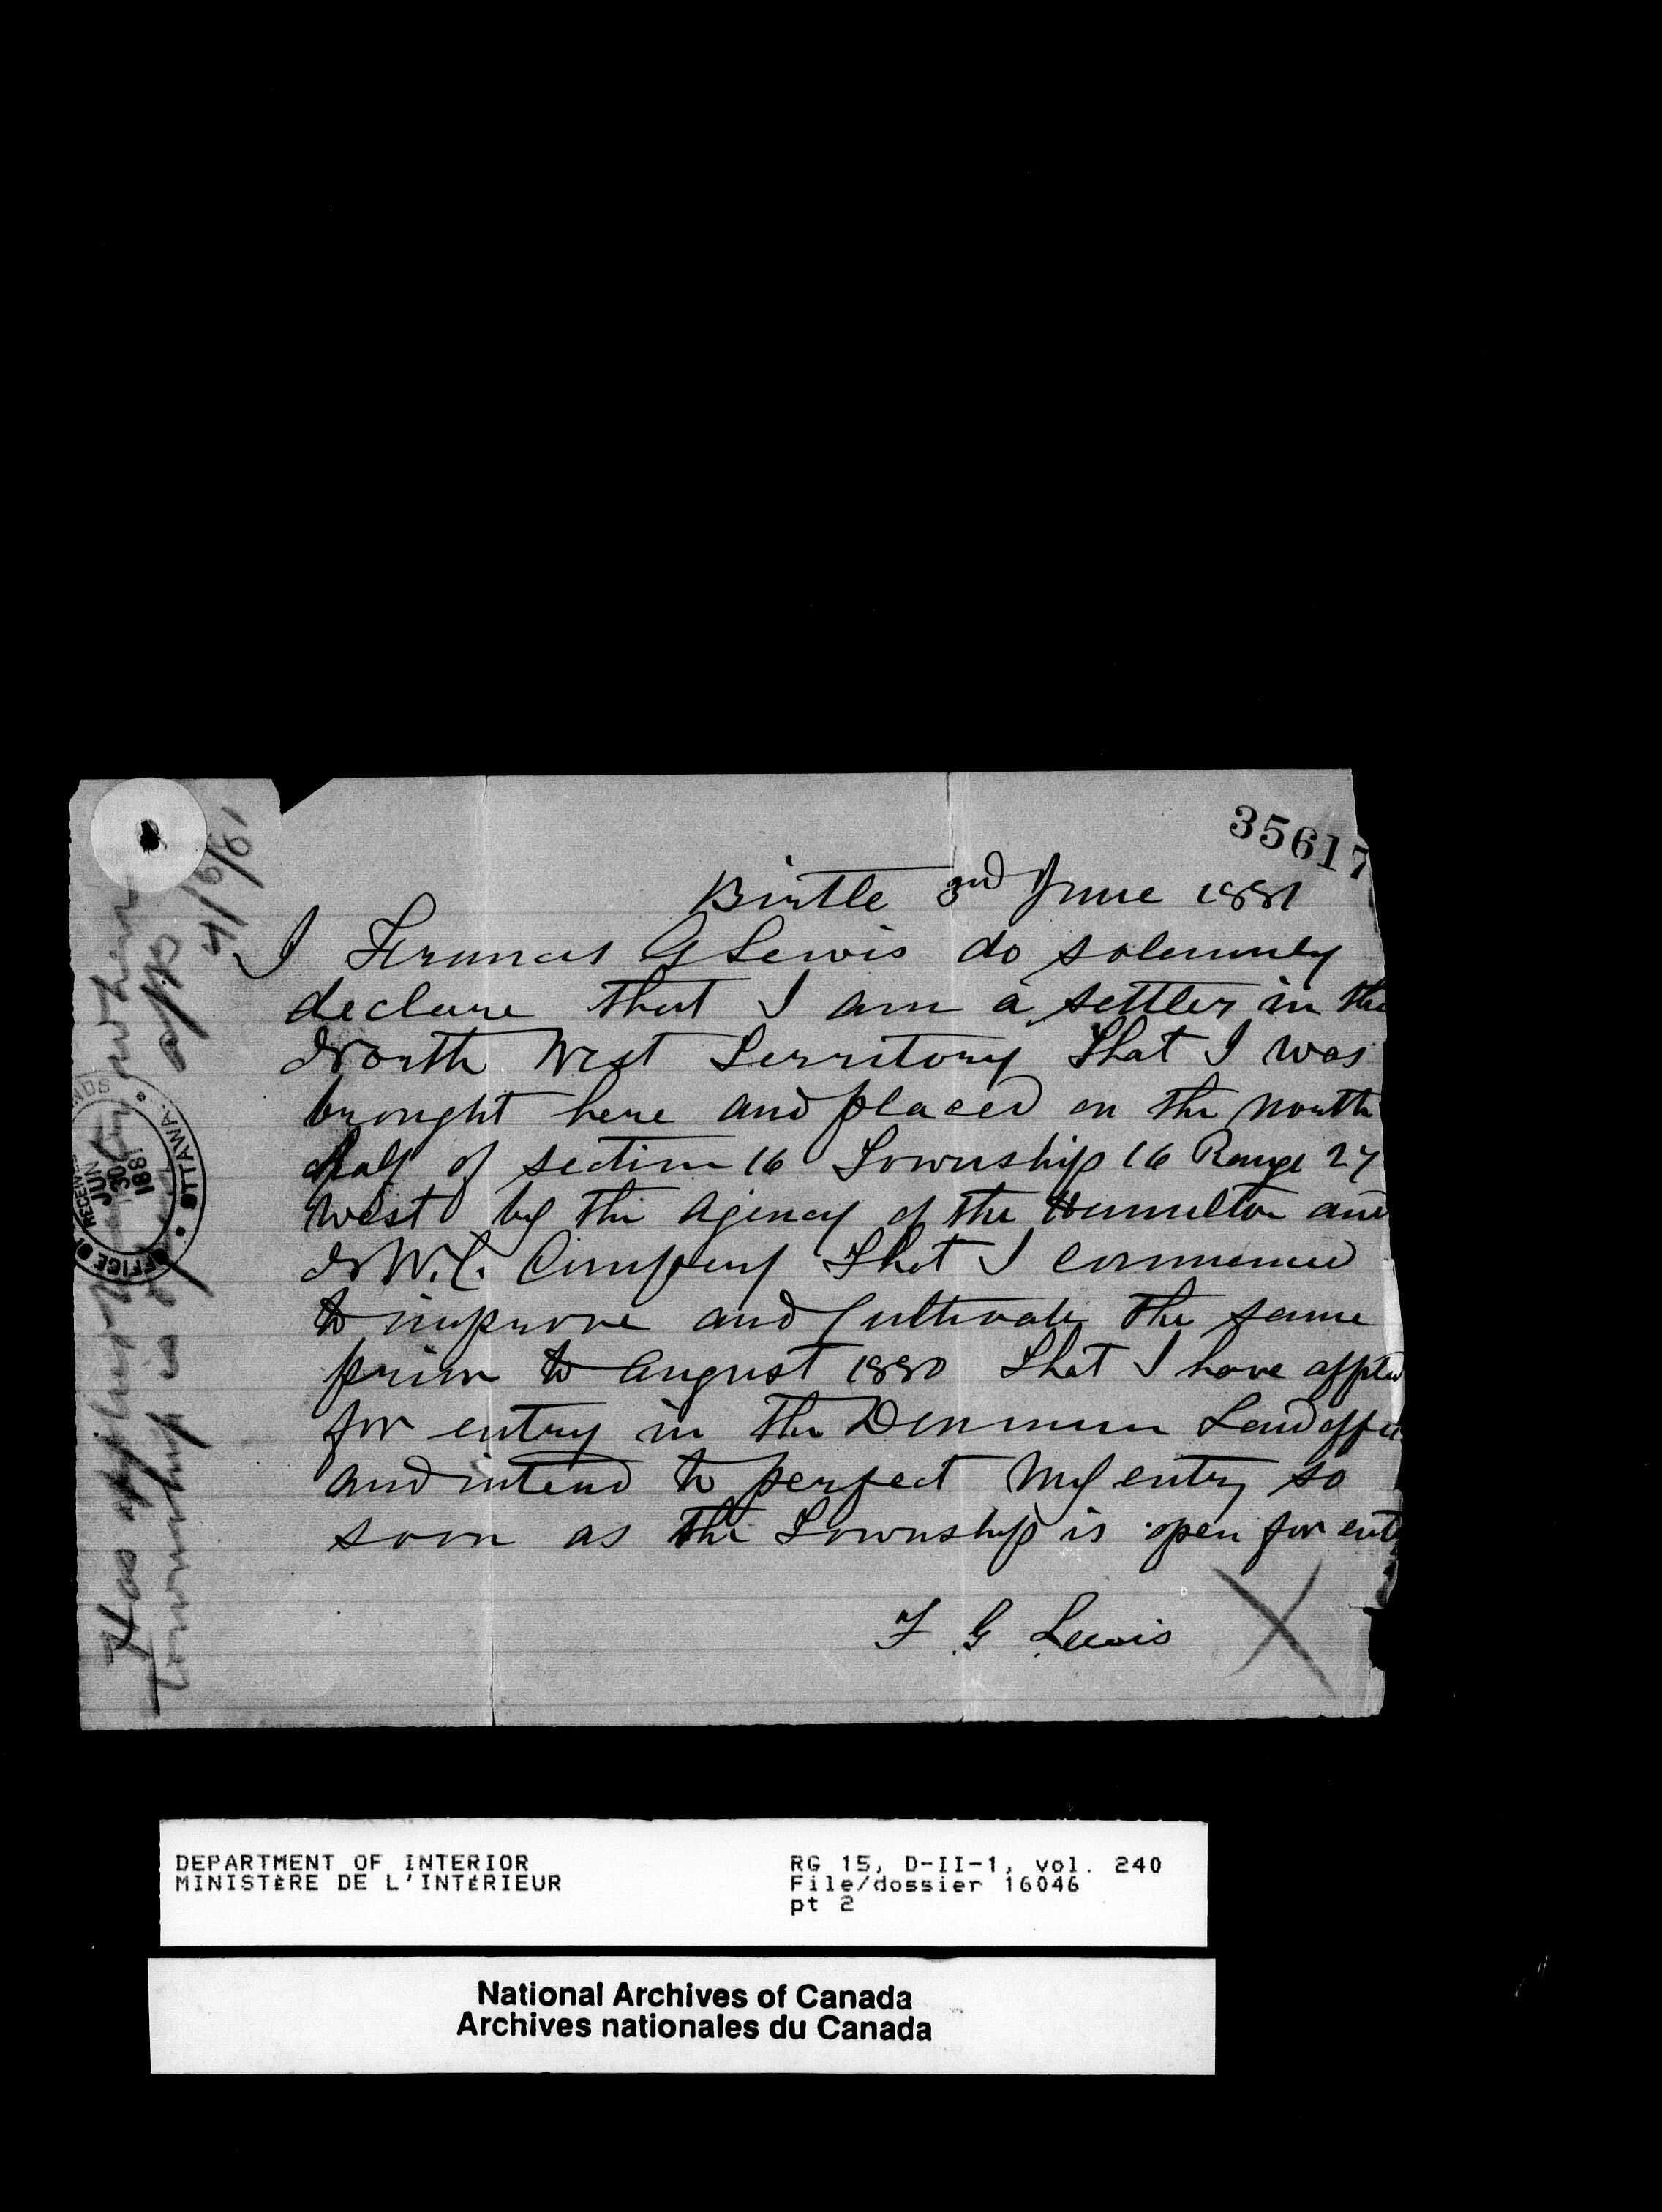 35617
Birtle 3rd June 1881
I Francis G Lewis do solemnly
declare that I am a settler in the
North West Territory That I was
brought here and placed on the north
half of section 16 Township 16 Range 27
West by the Agency of the Hamilton and
N W. C. Company That I commenced
to improve and Cultivate the same
prior to August 1880 That I have applied
for entry in the Dominion Land office
and intend to perfect my entry so
soon as the Township is open for entry
F. G. Lewis
X
Has applied for entry when
township is
4/6/61
OFFICE RECEIVED LANDS OTTAWA.
JUN
30
1881
DEPARTMENT OF INTERIOR
MINISTÈRE DE L'INTÉRIEUR
RG 15, D-II-1, vol. 240
File/dossier 16046
pt 2
National Archives of Canada
Archives nationales du Canada